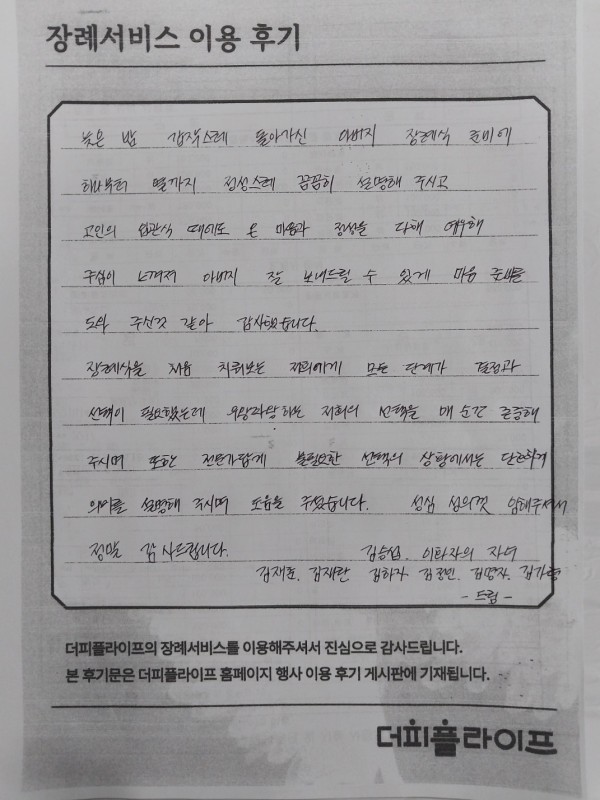 장례서비스 이용 후기
늦은 밤 갑작스레 돌아가신 아버지 장례식 준비에
하나부터 열까지 정성스레 꼼꼼히 설명해 주시고
고인의 입관식 때에도 온 마음과 정성을 다해 예우해
주심이 느껴져 아버지 잘 보내드릴 수 있게 마음 준비를
도와 주신것 같아 감사했습니다.
장례식을 처음 치뤄보는 저희에게 모든 단계가 결정과
선택이 필요했는데 우왕좌왕 하는 저희의 선택을 매 순간 존중해
주시며 또한 전문가답게 불필요한 선택의 상황에서는 단호하게
의미를 설명해 주시며 도움을 주셨습니다. 성심 성의껏 임해주셔서
정말 감사드립니다. 김승섭, 이화자의 자녀
김재훈, 김재란 김하자 김정민, 김명자, 김가령
- 드림 -
더피플라이프의 장례서비스를 이용해주셔서 진심으로 감사드립니다.
본 후기문은 더피플라이프 홈페이지 행사 이용 후기 게시판에 기재됩니다.
더피플라이프